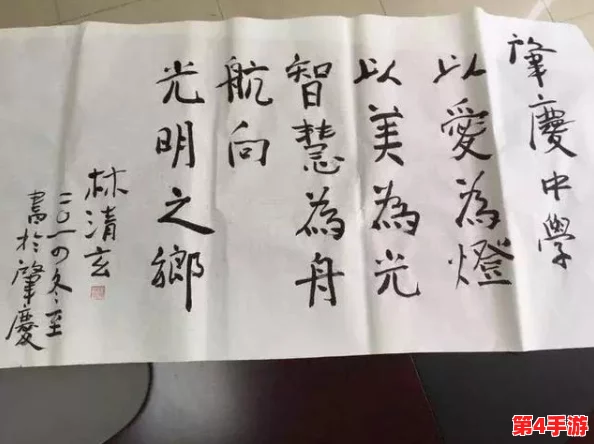 肇慶中學
以愛為燈
以美為光
智慧為舟
航向
光明之鄉
林清玄
二〇一四冬至
書於肇慶
第4手游